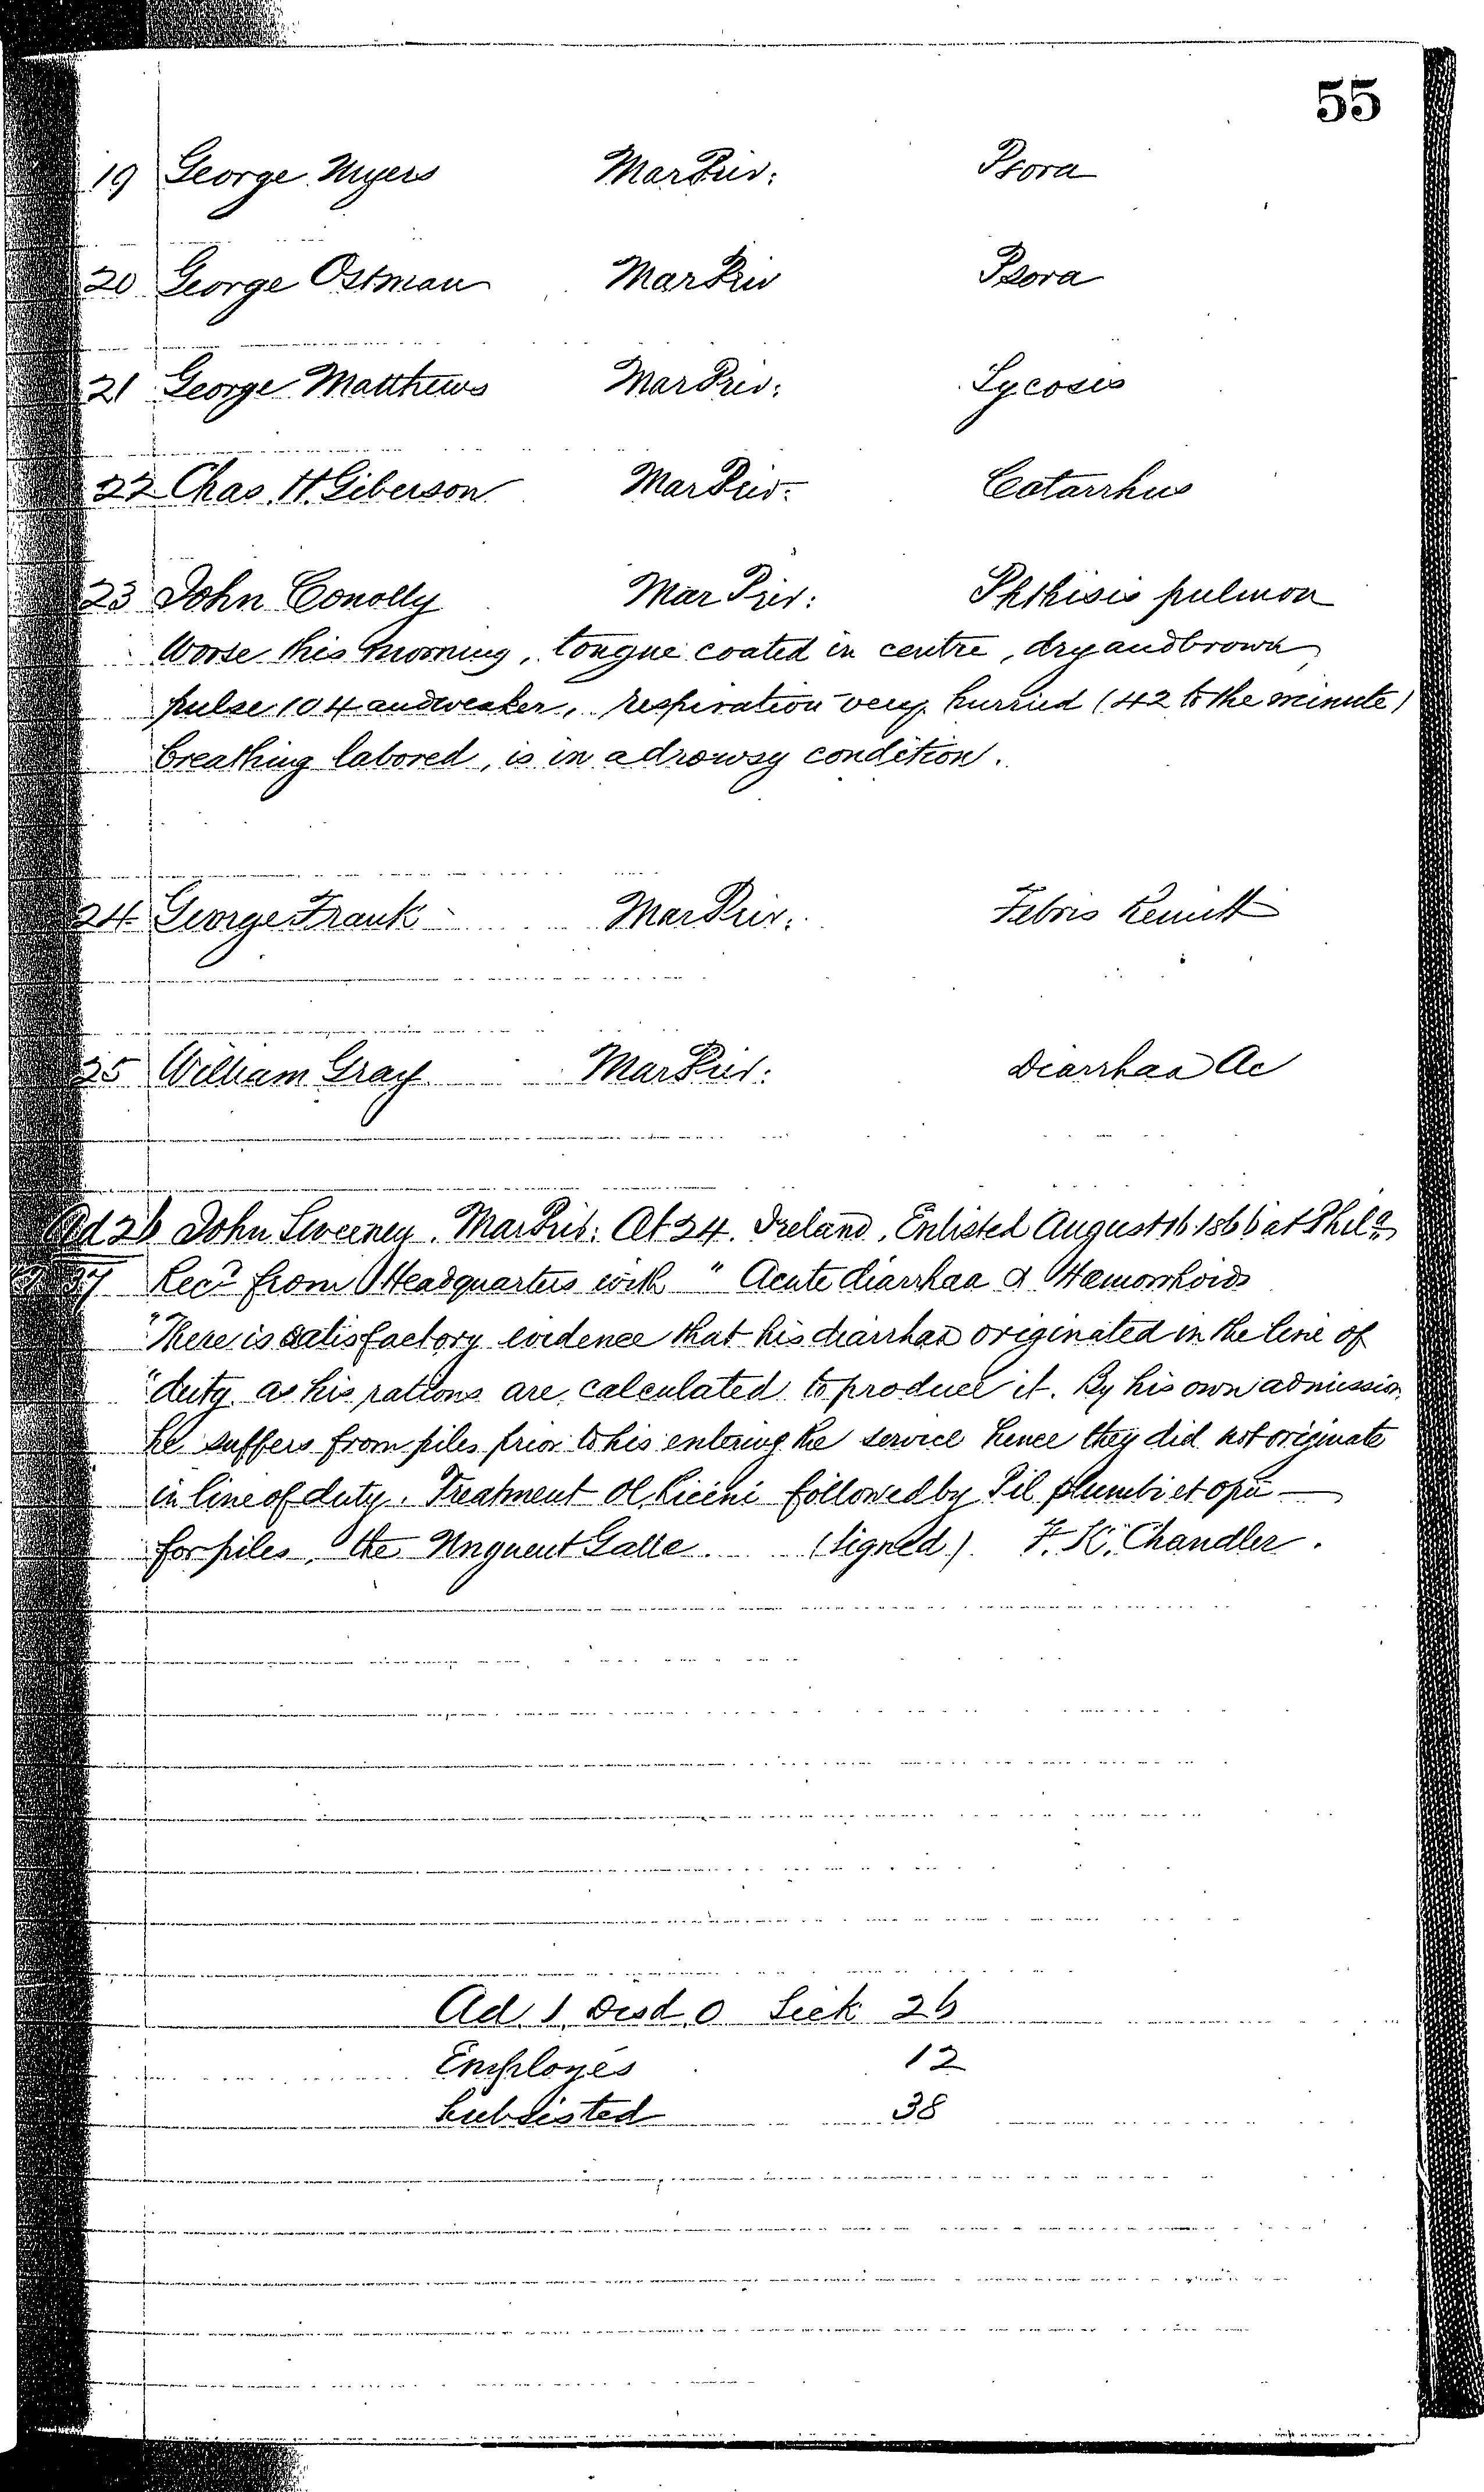 55
19 George Myers Mar Priv: Psora
20 George Ostman Mar Priv Psora
21 George Matthews Mar Priv: Sycosis
22 Chas. H. Giberson Mar Priv: Catarrhus
23 John Conolly Mar Priv: Phthisis pulmon
Worse this morning, tongue coated in centre, dry and brown
pulse 104 and weaker, respiration very hurried (42 to the minute)
breathing labored, is in a drowsy condition.
24 George Frank Mar Priv: Febris Remitt
25 William Gray Mar Priv: Diarrhœa Ac
Ad 26 John Sweeney. Mar Priv: Æt 24. Ireland. Enlisted August 16 1866 at Phila
37 Recd from Headquarters with " Acute diarrhœa & Hæmorrhoids
"There is satisfactory evidence that his diarrhœa originated in the line of
"duty as his rations are calculated to produce it. By his own admission
he suffers from piles prior to his entering the service hence they did not originate
in line of duty. Treatment Ol Ricini followed by Pil plumbi et opii —
for piles, the Unguent Gallæ. (Signed). F. K. Chandler.
Ad. 1. Disd. 0 Sick 26
Employés 12
Subsisted 38